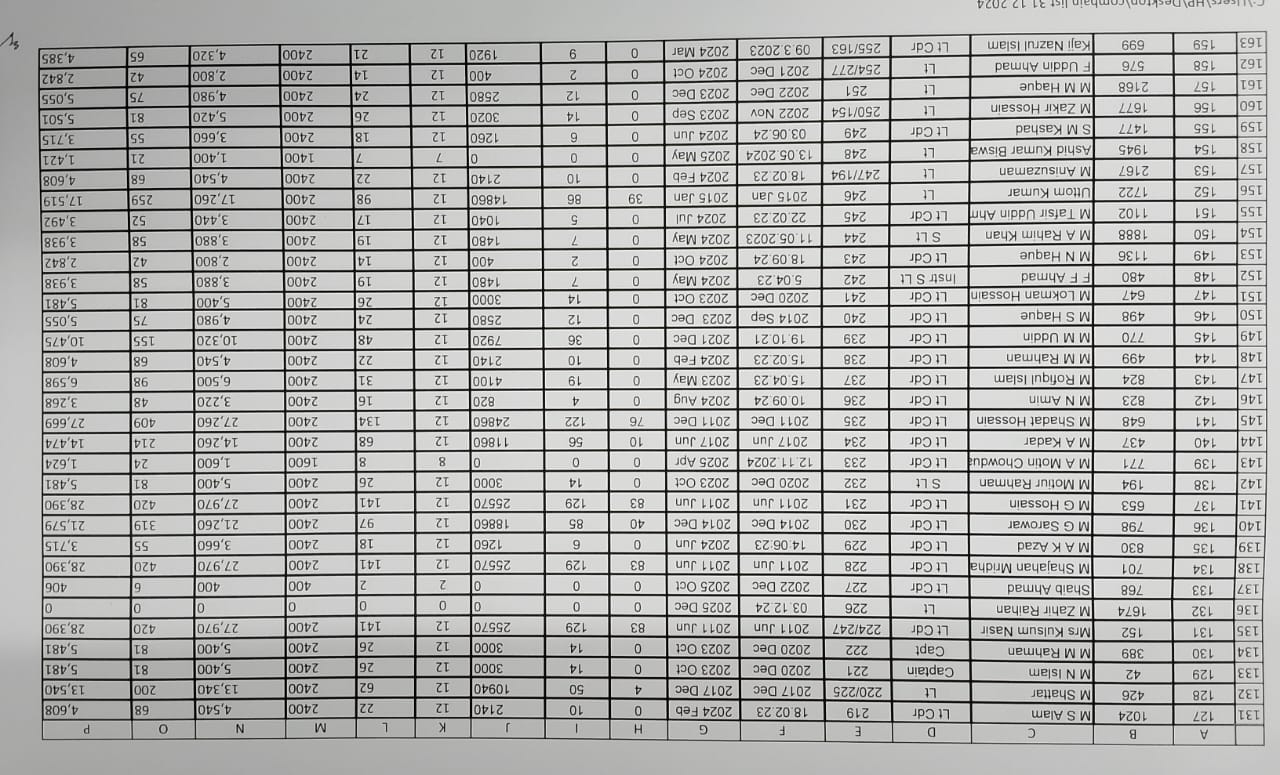 A B C D E F G H I J K L M N O P
131 127 1024 M S Alam Lt Cdr 219 18.02.23 2024 Feb 0 10 2140 12 22 2400 4,540 68 4,608
132 128 426 M Shattar Lt 220/225 2017 Dec 2017 Dec 4 50 10940 12 62 2400 13,340 200 13,540
133 129 42 M N Islam Captain 221 2020 Dec 2023 Oct 0 14 3000 12 26 2400 5,400 81 5,481
134 130 389 M M Rahman Capt 222 2020 Dec 2023 Oct 0 14 3000 12 26 2400 5,400 81 5,481
135 131 152 Mrs Kulsum Nasir Lt Cdr 224/247 2011 Jun 2011 Jun 83 129 25570 12 141 2400 27,970 420 28,390
136 132 1674 M Zahir Raihan Lt 226 03.12.24 2025 Dec 0 0 0 0 0 0 0 0 0
137 133 768 Shaib Ahmad Lt Cdr 227 2022 Dec 2025 Oct 0 0 0 2 2 400 400 6 406
138 134 701 M Shajahan Mridha Lt Cdr 228 2011 Jun 2011 Jun 83 129 25570 12 141 2400 27,970 420 28,390
139 135 830 M A K Azad Lt Cdr 229 14:06:23 2024 Jun 0 6 1260 12 18 2400 3,660 55 3,715
140 136 798 M G Sarowar Lt Cdr 230 2014 Dec 2014 Dec 40 85 18860 12 97 2400 21,260 319 21,579
141 137 653 M G Hossain Lt Cdr 231 2011 Jun 2011 Jun 83 129 25570 12 141 2400 27,970 420 28,390
142 138 194 M Motiur Rahman S Lt 232 2020 Dec 2023 Oct 0 14 3000 12 26 2400 5,400 81 5,481
143 139 771 M A Motin Chowdua Lt Cdr 233 12.11.2024 2025 Apr 0 0 0 8 8 1600 1,600 24 1,624
144 140 437 M A Kadar Lt Cdr 234 2017 Jun 2017 Jun 10 56 11860 12 68 2400 14,260 214 14,474
145 141 648 M Shadat Hossain Lt Cdr 235 2011 Dec 2011 Dec 76 122 24860 12 134 2400 27,260 409 27,669
146 142 823 M N Amin Lt Cdr 236 10.09.24 2024 Aug 0 4 820 12 16 2400 3,220 48 3,268
147 143 824 M Rofiqul Islam Lt Cdr 237 15.04.23 2023 May 0 19 4100 12 31 2400 6,500 98 6,598
148 144 499 M M Rahman Lt Cdr 238 15.02.23 2024 Feb 0 10 2140 12 22 2400 4,540 68 4,608
149 145 770 M M Uddin Lt Cdr 239 19.10.21 2021 Dec 0 36 7920 12 48 2400 10,320 155 10,475
150 146 498 M S Haque Lt Cdr 240 2014 Sep 2023 Dec 0 12 2580 12 24 2400 4,980 75 5,055
151 147 647 M Lokman Hossain Lt Cdr 241 2020 Dec 2023 Oct 0 14 3000 12 26 2400 5,400 81 5,481
152 148 480 F F Ahmad Instr S Lt 242 5.04.23 2024 May 0 7 1480 12 19 2400 3,880 58 3,938
153 149 1136 M N Haque Lt Cdr 243 18.09.24 2024 Oct 0 2 400 12 14 2400 2,800 42 2,842
154 150 1888 M A Rahim Khan S Lt 244 11.05.2023 2024 May 0 7 1480 12 19 2400 3,880 58 3,938
155 151 1102 M Tafsir Uddin Ahm Lt Cdr 245 22.02.23 2024 Jul 0 5 1040 12 17 2400 3,440 52 3,492
156 152 1722 Uttom Kumar Lt 246 2015 Jan 2015 Jan 39 86 14860 12 98 2400 17,260 259 17,519
157 153 2167 M Anisuzaman Lt 247/194 18.02.23 2024 Feb 0 10 2140 12 22 2400 4,540 68 4,608
158 154 1945 Ashid Kumar Biswa Lt 248 13.05.2024 2025 May 0 0 0 7 7 1400 1,400 21 1,421
159 155 1477 S M Kashad Lt Cdr 249 03.06.24 2024 Jun 0 6 1260 12 18 2400 3,660 55 3,715
160 156 1677 M Zakir Hossain Lt 250/154 2022 Nov 2023 Sep 0 14 3020 12 26 2400 5,420 81 5,501
161 157 2168 M M Haque Lt 251 2022 Dec 2023 Dec 0 12 2580 12 24 2400 4,980 75 5,055
162 158 576 F Uddin Ahmad Lt 254/277 2021 Dec 2024 Oct 0 2 400 12 14 2400 2,800 42 2,842
163 159 699 Kaji Nazrul Islam Lt Cdr 255/163 09.3.2023 2024 Mar 0 9 1920 12 21 2400 4,320 65 4,385
C:\Users\HP\Desktop\combain list 31.12.2024